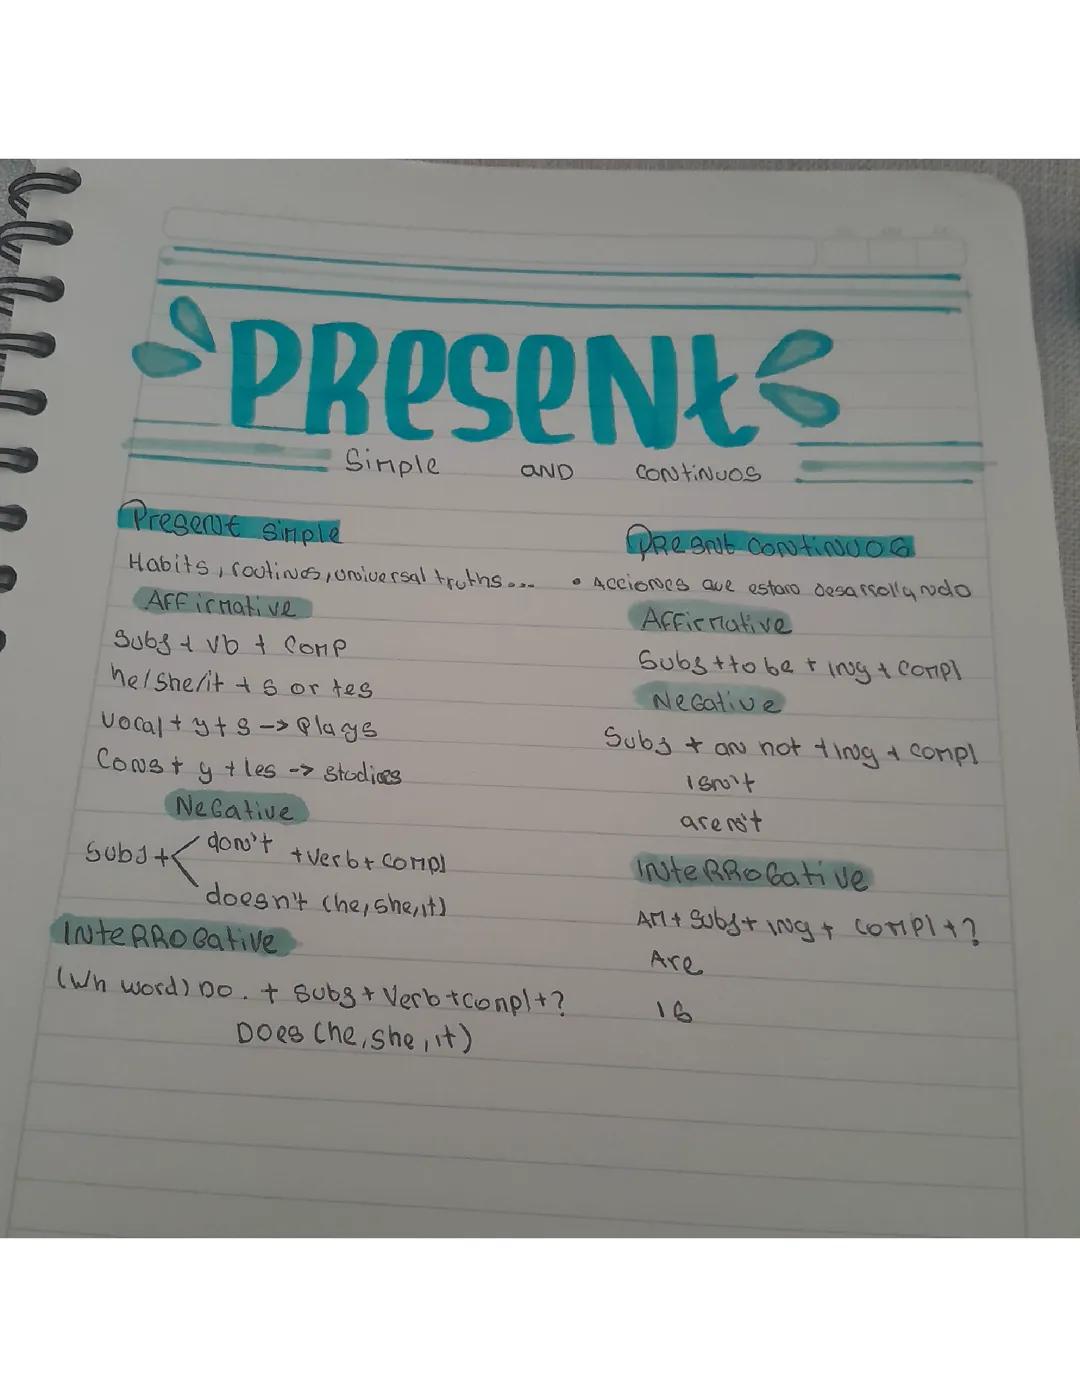 PResent
Simple AND continuos
Present simple
Habits, routines, universal truths...
Affirmative
Subj + vb + comp
he/she/it + s or tes
vocal + y + s -> Plays
Cons + y + ies -> studies
Negative
Subj + don't + verb + compl
doesn't (he, she, it)
INteRRoGative
(Wh word) Do. + Subj + Verb + compl + ?
Does (he, she, it)
PResnt continuos
• Acciones que estan desarrollando
Affirmative
Subs + to be + ing + compl
Negative
Subj + am not + ing + compl
isn't
aren't
INteRRoGative
AM + Subj + ing + compl + ?
Are
is